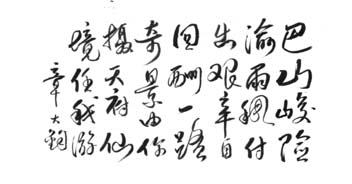 巴山峻险
渝雨稠付
出艰辛自
回酬一路
奇景由你
摄天府仙
境任我游
章大钧